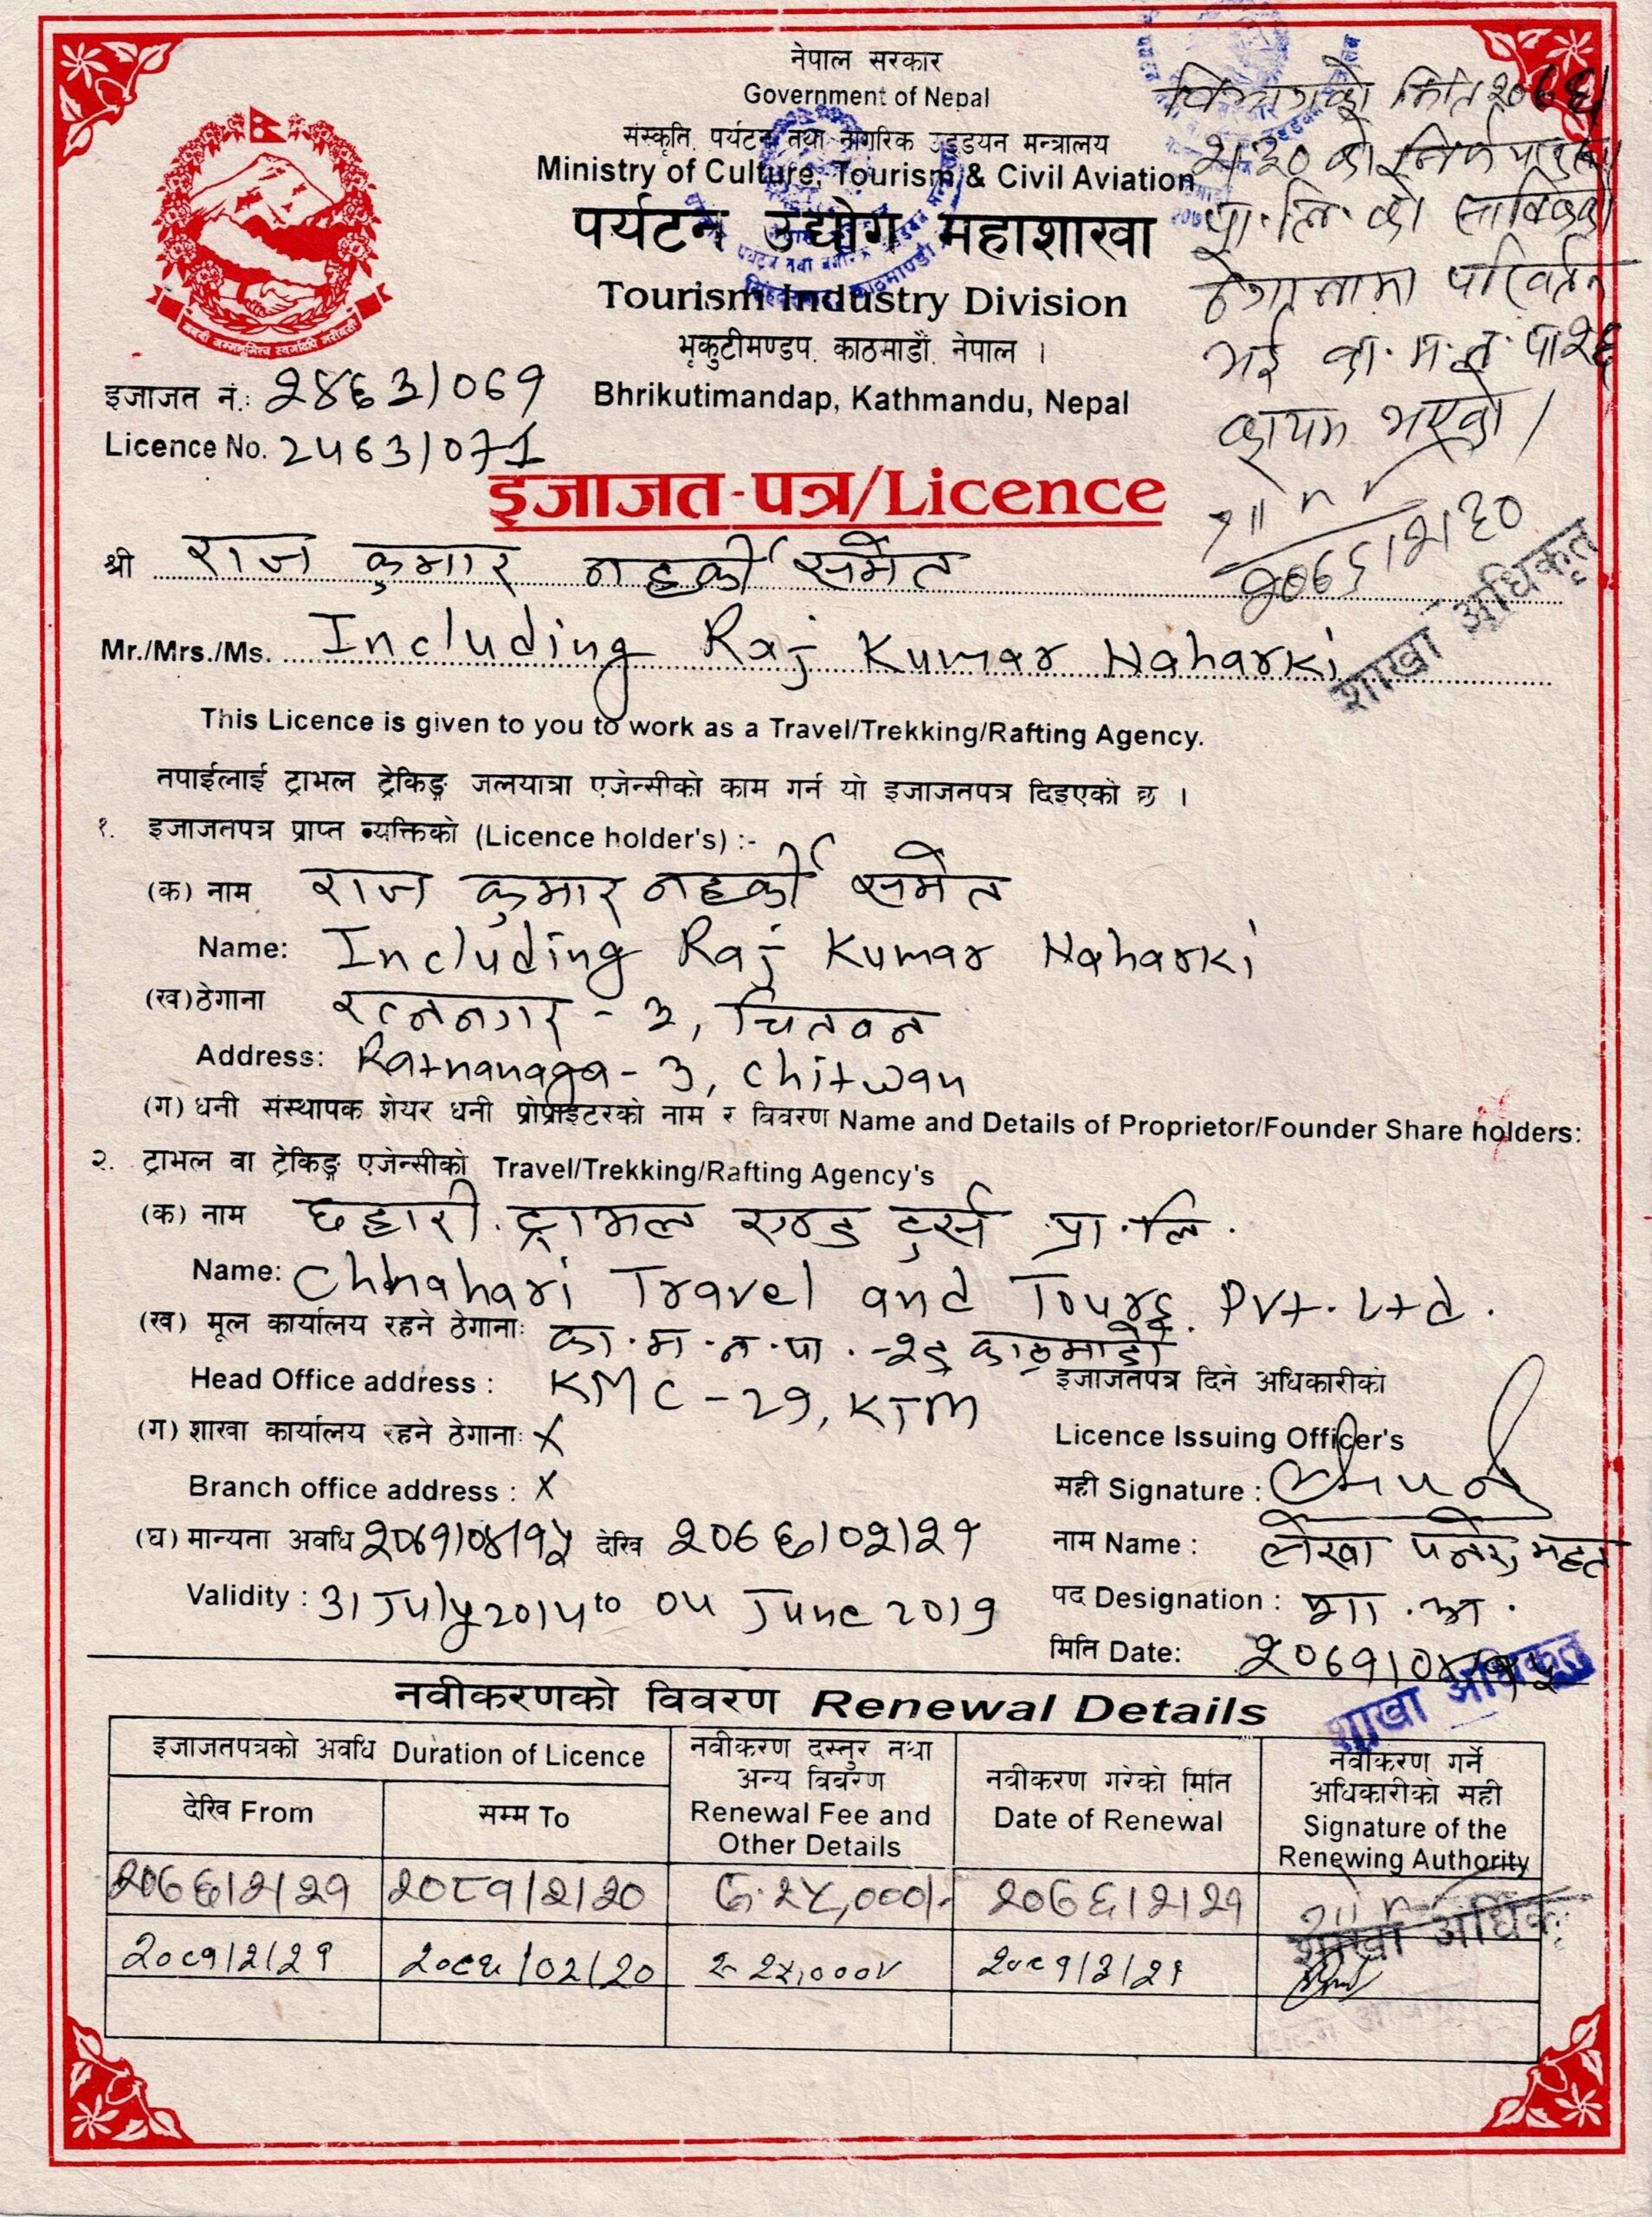 नेपाल सरकार
Government of Nepal
संस्कृति, पर्यटन तथा नागरिक उड्डयन मन्त्रालय
Ministry of Culture, Tourism & Civil Aviation
पर्यटन उद्योग महाशाखा
Tourism Industry Division
भृकुटीमण्डप, काठमाडौं, नेपाल ।
Bhrikutimandap, Kathmandu, Nepal
प्रा.लि. को साविकको
ठेगानामा परिवर्तन
भई का.म.न.पा २६
कायम भएको /
२०७६/२/३०
शाखा अधिकृत
इजाजत नं.: २४६३/०७१
Licence No. 2463/071
इजाजत-पत्र/Licence
श्री राज कुमार नहर्की समेत
Mr./Mrs./Ms. Including Raj Kumar Naharki
This Licence is given to you to work as a Travel/Trekking/Rafting Agency.
तपाईलाई ट्राभल ट्रेकिङ्ग जलयात्रा एजेन्सीको काम गर्न यो इजाजतपत्र दिइएको छ ।
१. इजाजतपत्र प्राप्त व्यक्तिको (Licence holder's) :-
(क) नाम राज कुमार नहर्की समेत
Name: Including Raj Kumar Naharki
(ख) ठेगाना रत्ननगर - ३, चितवन
Address: Ratnanaga - 3, Chitwan
(ग) धनी संस्थापक शेयर धनी प्रोप्राईटरको नाम र विवरण Name and Details of Proprietor/Founder Share holders:
२. ट्राभल वा ट्रेकिङ्ग एजेन्सीको Travel/Trekking/Rafting Agency's
(क) नाम छहारी ट्राभल एण्ड टुर्स प्रा.लि.
Name: Chhahari Travel and Tours Pvt. Ltd.
(ख) मूल कार्यालय रहने ठेगानाः का.म.न.पा.-२९ काठमाडौं
Head Office address : KMC - 29, KTM
(ग) शाखा कार्यालय रहने ठेगानाः X
Branch office address : X
(घ) मान्यता अवधि २०७१/०४/१५ देखि २०७६/०२/२१
Validity : 31 July 2014 to 04 June 2019
इजाजतपत्र दिने अधिकारीको
Licence Issuing Officer's
सही Signature :
नाम Name :
पद Designation : शा.अ.
मिति Date: २०७१/०४/१५
शाखा अधिकृत
नवीकरणको विवरण Renewal Details
इजाजतपत्रको अवधि Duration of Licence
देखि From
सम्म To
नवीकरण दस्तुर तथा
अन्य विवरण
Renewal Fee and
Other Details
नवीकरण गरेको मिति
Date of Renewal
नवीकरण गर्ने
अधिकारीको सही
Signature of the
Renewing Authority
२०७६/२/२१ २०८१/२/२० रु. २५,०००/- २०७६/२/२१
शाखा अधिकृ
२०८१/२/२१ २०८६/०२/२० रु २५,०००/ २०८१/२/२१